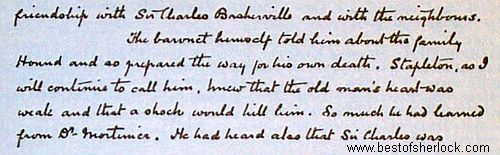 friendship with Sir Charles Baskerville and with the neighbours.
The baronet himself told him about the family
Hound and so prepared the way for his own death. Stapleton, as I
will continue to call him, knew that the old man's heart was
weak and that a shock would kill him. So much he had learned
from Dr Mortimer. He had heard also that Sir Charles was
www.bestofsherlock.com